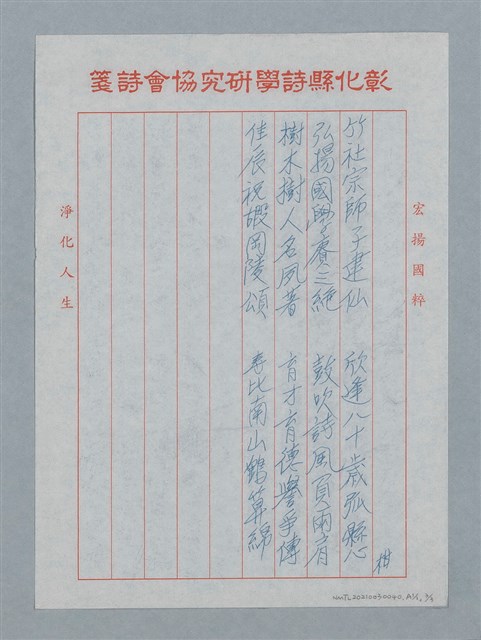 彰化縣詩學研究協會詩箋
宏揚國粹
竹社宗師子建仙 欣逢八十歲弧懸
弘揚國學賡三絕 鼓吹詩風負兩肩
樹木樹人名夙著 育才育德譽爭傳
佳辰祝嘏岡陵頌 壽比南山鶴算綿
淨化人生
NMTL20210050040